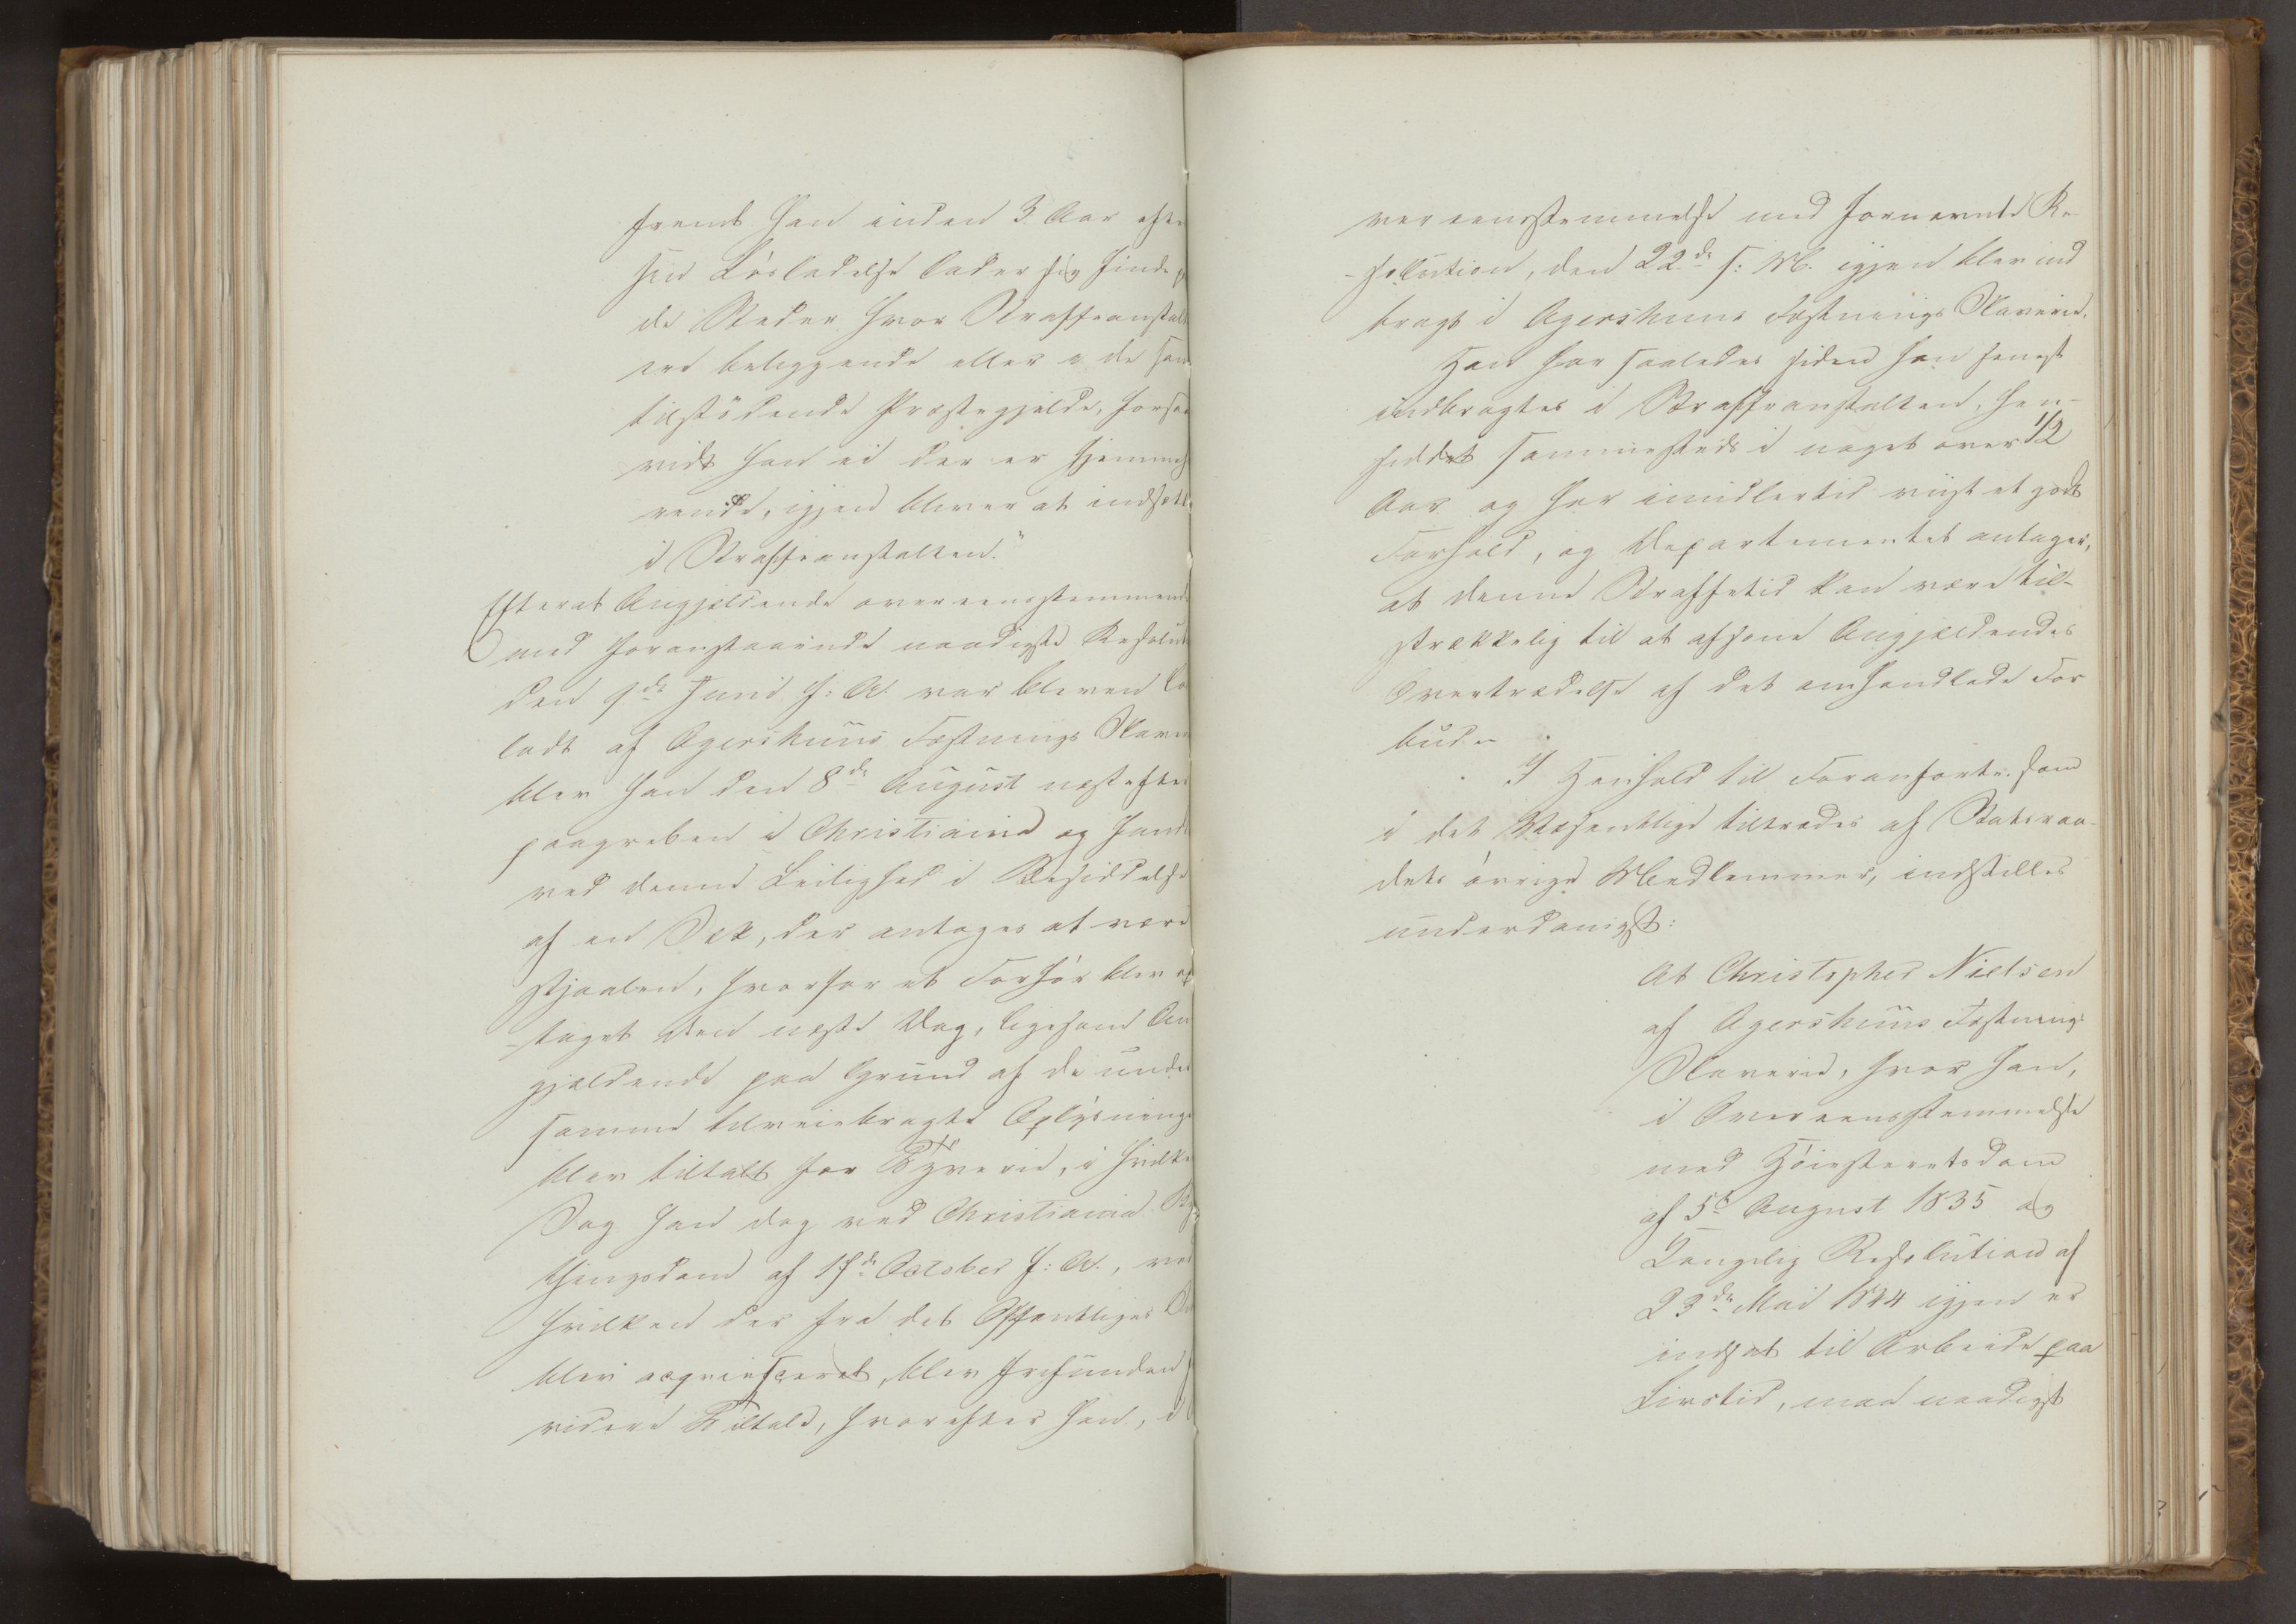 fremt han inden 3 Aar efter
sin Løsladelse lader sig finde p
de Steder hvor Straffeanstalt
ere beliggende eller i de sam
tilstødende Præstegjelde, forsaa
vidt han ei der er hjemmehø
rende, igjen bliver at indsætte
i Straffeanstalten."
Efterat Angjeldende overeensstemmende
med foranstaaende naadigste Resoluti
den 9de Juni f: A. var bleven lø
ladt af Agershuus Fæstnings Slaveri
blev han den 8de August næstefter
paagreben i Christiania og fandt
ved denne Leilighed i Besiddelse
af en Sæk, der antoges at være
stjaalen, hvorfor et Forhør blev op
-taget den næste Dag, ligesom An
gjældende paa Grund af de under
samme tilveiebragte Oplysninge
blev tiltalt for Tyverie, i hvilke
Sag han dog ved Christiania By
thingsdom af 17de October f: A., ved
hvilken der fra det Offentliges Si
blev acqviesceret, blev frifunden f
videre Tiltale, hvorefter han, i O
vereensstemmelse med fornævnte Re
-solution, den 22de s: M. igjen blev ind
bragt i Agershuus Fæstnings Slaverie.
Han har saaledes siden han senest
indbragtes i Straffeanstalten, hen-
siddet sammesteds i noget over 1/2
Aar og har imidlertid viist et godt
Forhold, og Departementet antager,
at denne Straffetid kan være til-
strækkelig til at afsone Angjeldendes
Overtrædelse af det omhandlede For
bud.
I Henhold til Foranførte som
i det Væsentlige tiltrædes af Statsraa-
dets øvrige Medlemmer, indstilles
underdanigst:
At Christopher Nielsen
af Agershuus Fæstnings
Slaverie, hvor han,
i Overeensstemmelse
med Høiesteretsdom
af 5te August 1835 og
Kongelig Resolution af
23de Mai 1844 igjen er
indsat til Arbeide paa
Livstid, maa naadigst